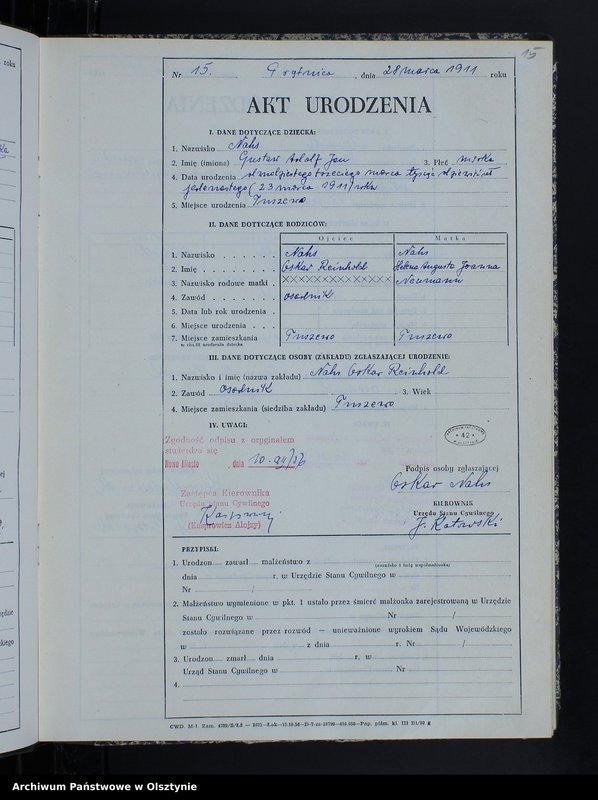 15
Nr 15. Grytnica, dnia 28 marca 1911 roku
AKT URODZENIA
I. DANE DOTYCZĄCE DZIECKA:
1. Nazwisko Nahs
2. Imię (imiona) Gustaw Adolf Jan 3. Płeć męska
4. Data urodzenia dwudziestego trzeciego marca tysiąc dziewięćset
jedenastego (23 marca 1911) roku
5. Miejsce urodzenia Tuszewo
II. DANE DOTYCZĄCE RODZICÓW:
Ojciec Matka
1. Nazwisko Nahs Nahs
2. Imię Oskar Reinhold Helena Augusta Joanna
3. Nazwisko rodowe matki XXXXXXXXXXXX Neumann
4. Zawód osadnik
5. Data lub rok urodzenia
6. Miejsce urodzenia
7. Miejsce zamieszkania Tuszewo Tuszewo
w chwili urodzenia dziecka
III. DANE DOTYCZĄCE OSOBY (ZAKŁADU) ZGŁASZAJĄCEJ URODZENIE:
1. Nazwisko i imię (nazwa zakładu) Nahs Oskar Reinhold
2. Zawód osadnik 3. Wiek
4. Miejsce zamieszkania (siedziba zakładu) Tuszewo
IV. UWAGI:
Zgodność odpisu z oryginałem
stwierdza się
Nowe Miasto, dnia
42
Podpis osoby zgłaszającej
Oskar Nahs
Zastępca Kierownika
Urzędu Stanu Cywilnego
(Kasprowicz Alojzy)
KIEROWNIK
Urzędu Stanu Cywilnego
J. Kotowski
PRZYPISKI:
1. Urodzon zawarł małżeństwo z
(nazwisko i imię współmałżonka)
dnia r. w Urzędzie Stanu Cywilnego w
Nr /
2. Małżeństwo wymienione w pkt. 1 ustało przez śmierć małżonka zarejestrowaną w Urzędzie
Stanu Cywilnego w Nr /
zostało rozwiązane przez rozwód — unieważnione wyrokiem Sądu Wojewódzkiego
w z dnia r. Nr /
3. Urodzon zmarł dnia r. w
Urząd Stanu Cywilnego w Nr
4.
Archiwum Państwowe w Olsztynie